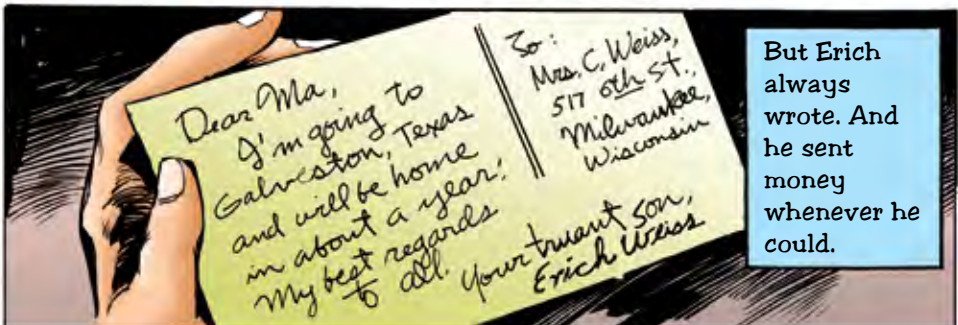 Dear Ma,
I'm going to
Galveston, Texas
and will be home
in about a year!
My best regards
to all.
Your truant son,
Erich Weiss
To:
Mrs. C. Weiss,
517 6th St.,
Milwaukee,
Wisconsin
But Erich
always
wrote. And
he sent
money
whenever he
could.